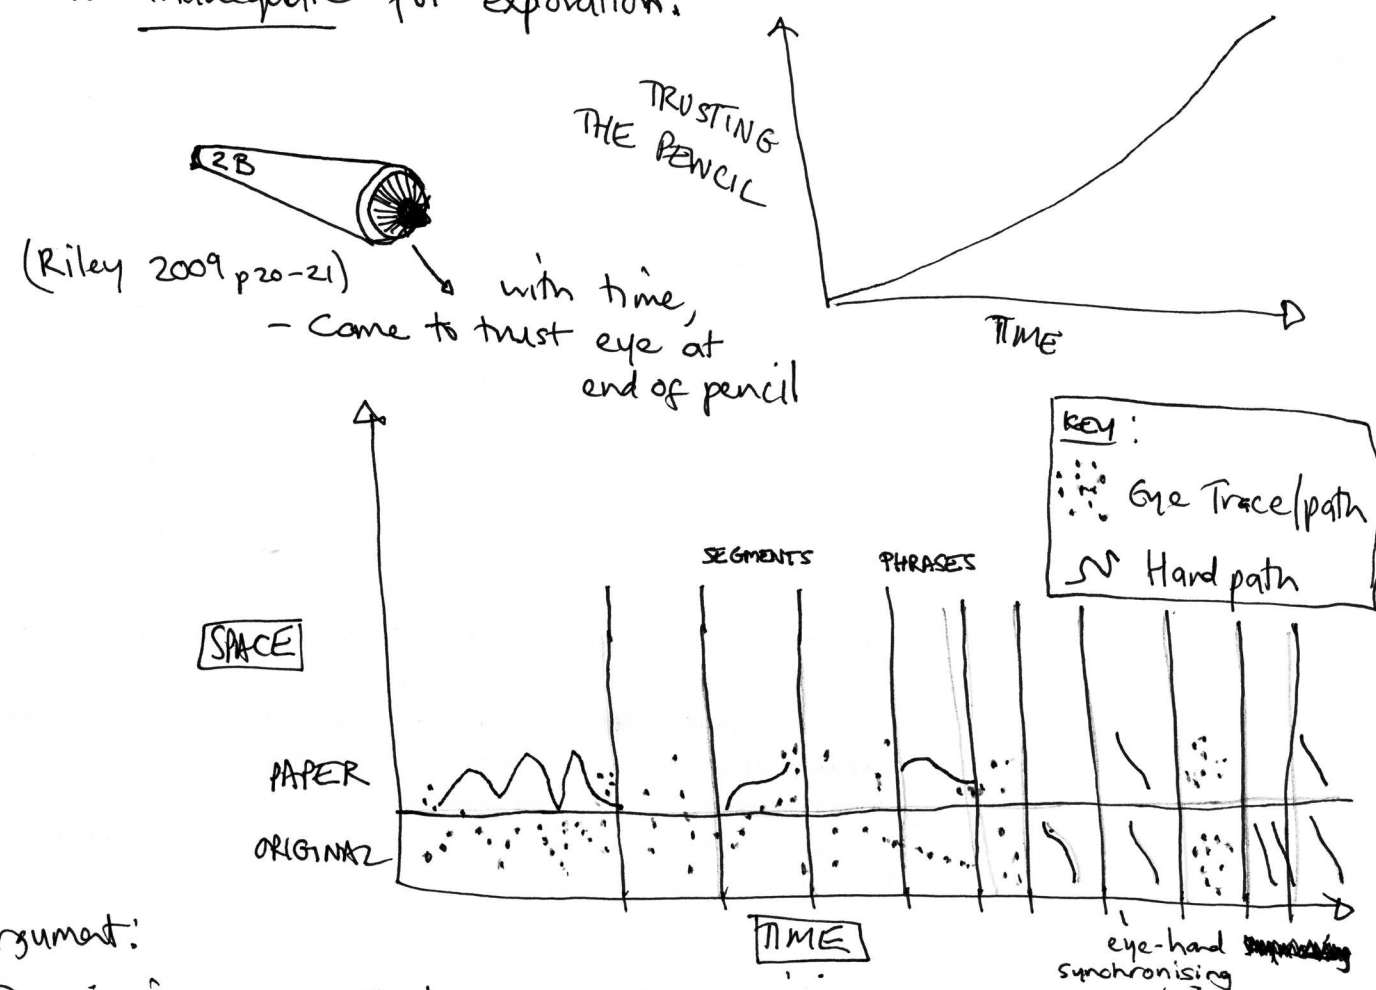 inadequate for exploration.
TRUSTING
THE PENCIL
TIME
2B
(Riley 2009 p20-21)
with time,
- Come to trust eye at
end of pencil
KEY:
Eye Trace/path
Hand path
SEGMENTS
PHRASES
SPACE
PAPER
ORIGINAL
TIME
eye-hand
synchronising